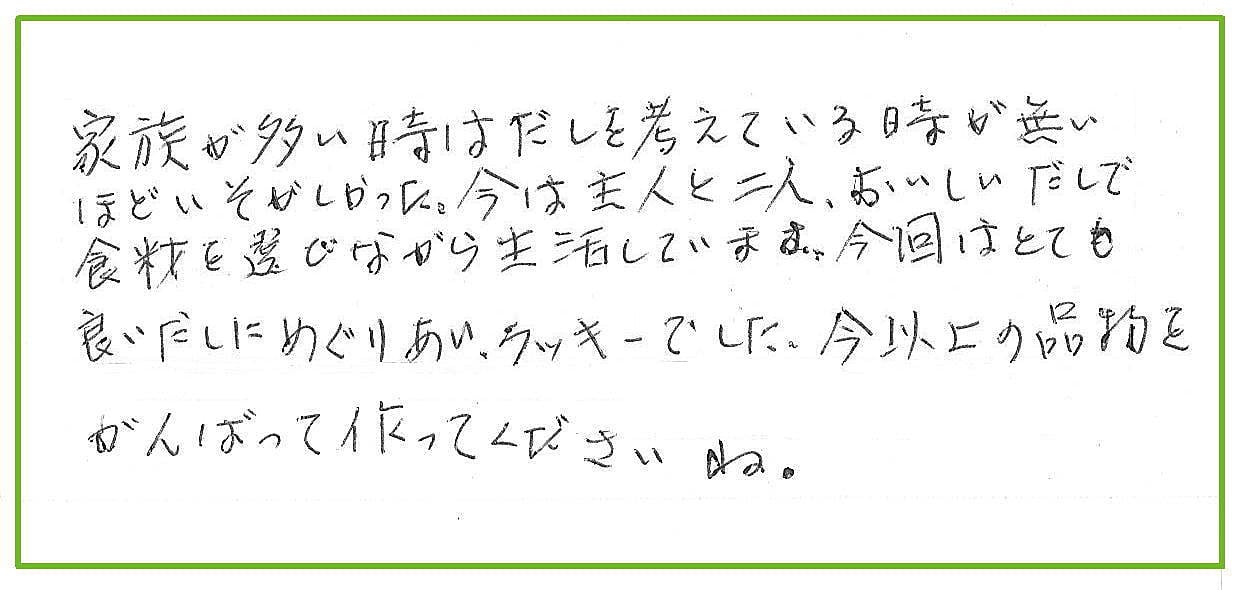 家族が多い時はだしを考えている時が無い
ほどいそがしかった。今は主人と二人、おいしいだしで
食材を選びながら生活しています。今回はとても
良いだしにめぐりあい、ラッキーでした。今以上の品物を
がんばって作ってくださいね。